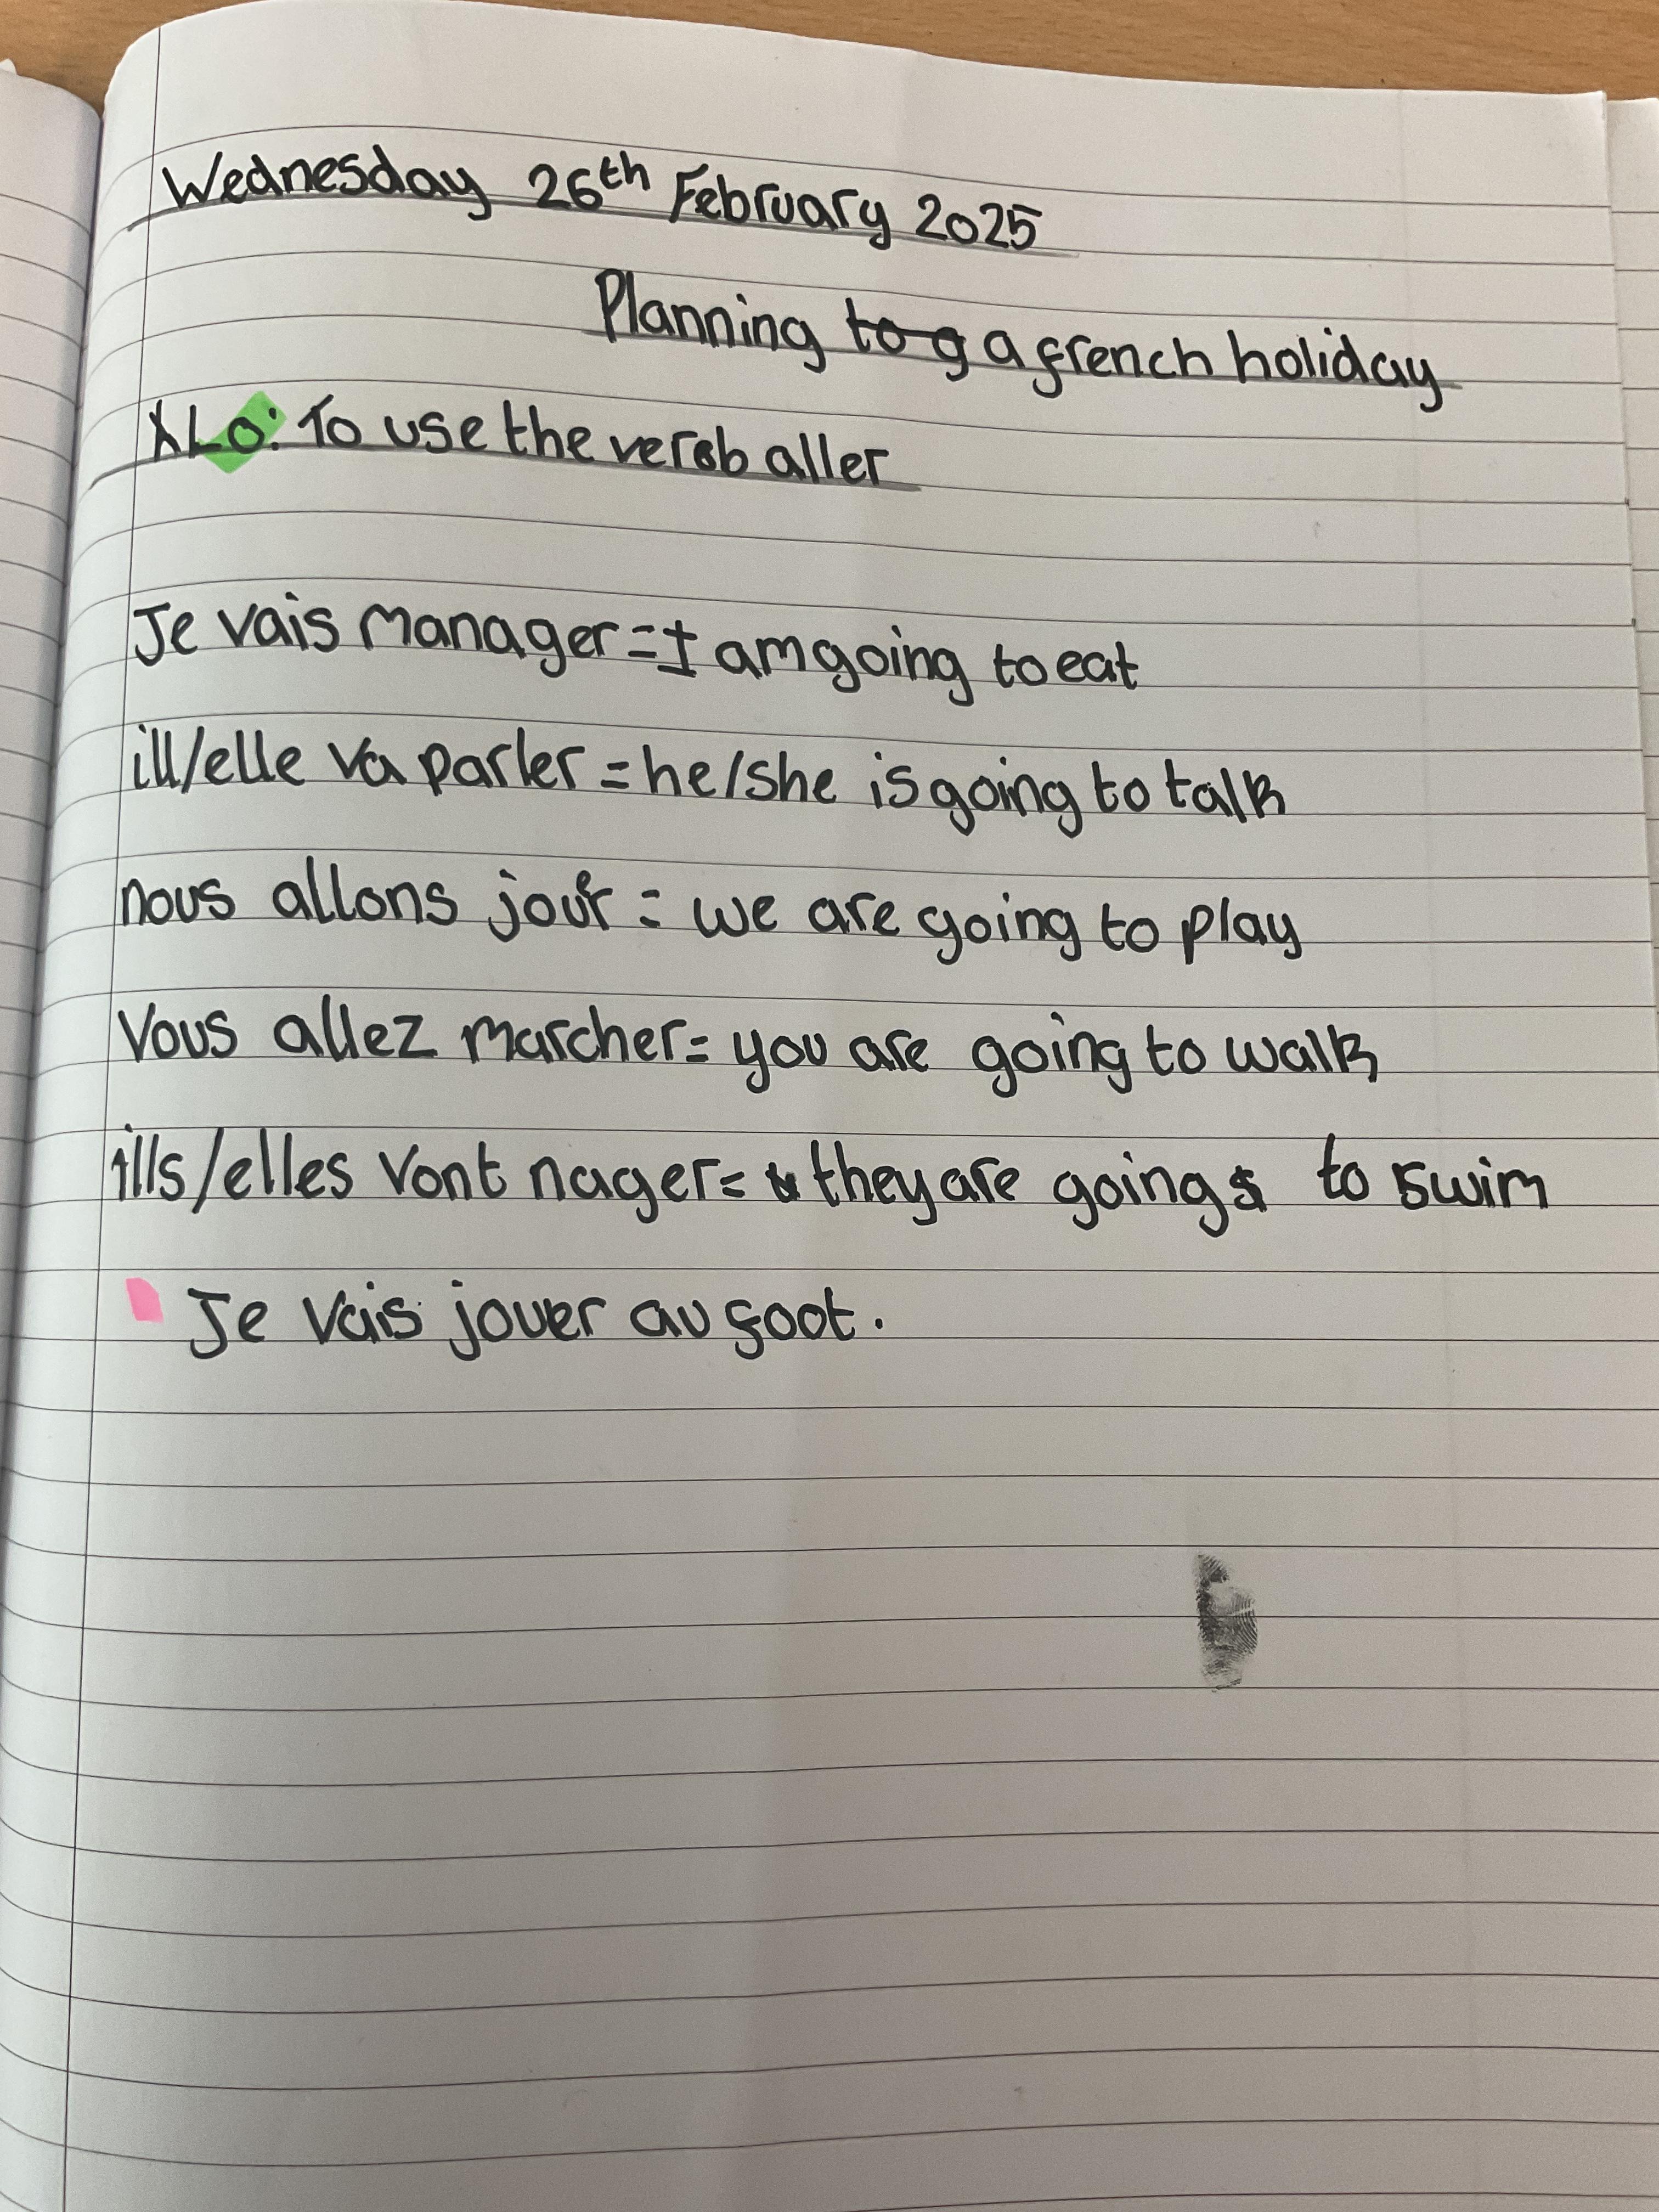 Wednesday 26th February 2025
Planning to g a french holiday
LO: To use the verb aller
Je vais manager = I am going to eat
ill/elle va parler = he/she is going to talk
nous allons jouer = we are going to play
Vous allez marcher = you are going to walk
ills/elles vont nager = they are going to swim
Je vais jouer au foot.